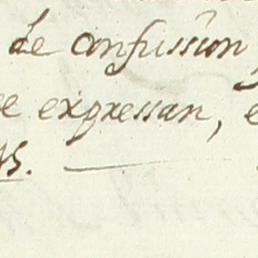 de confussion
e expressan, e
s.